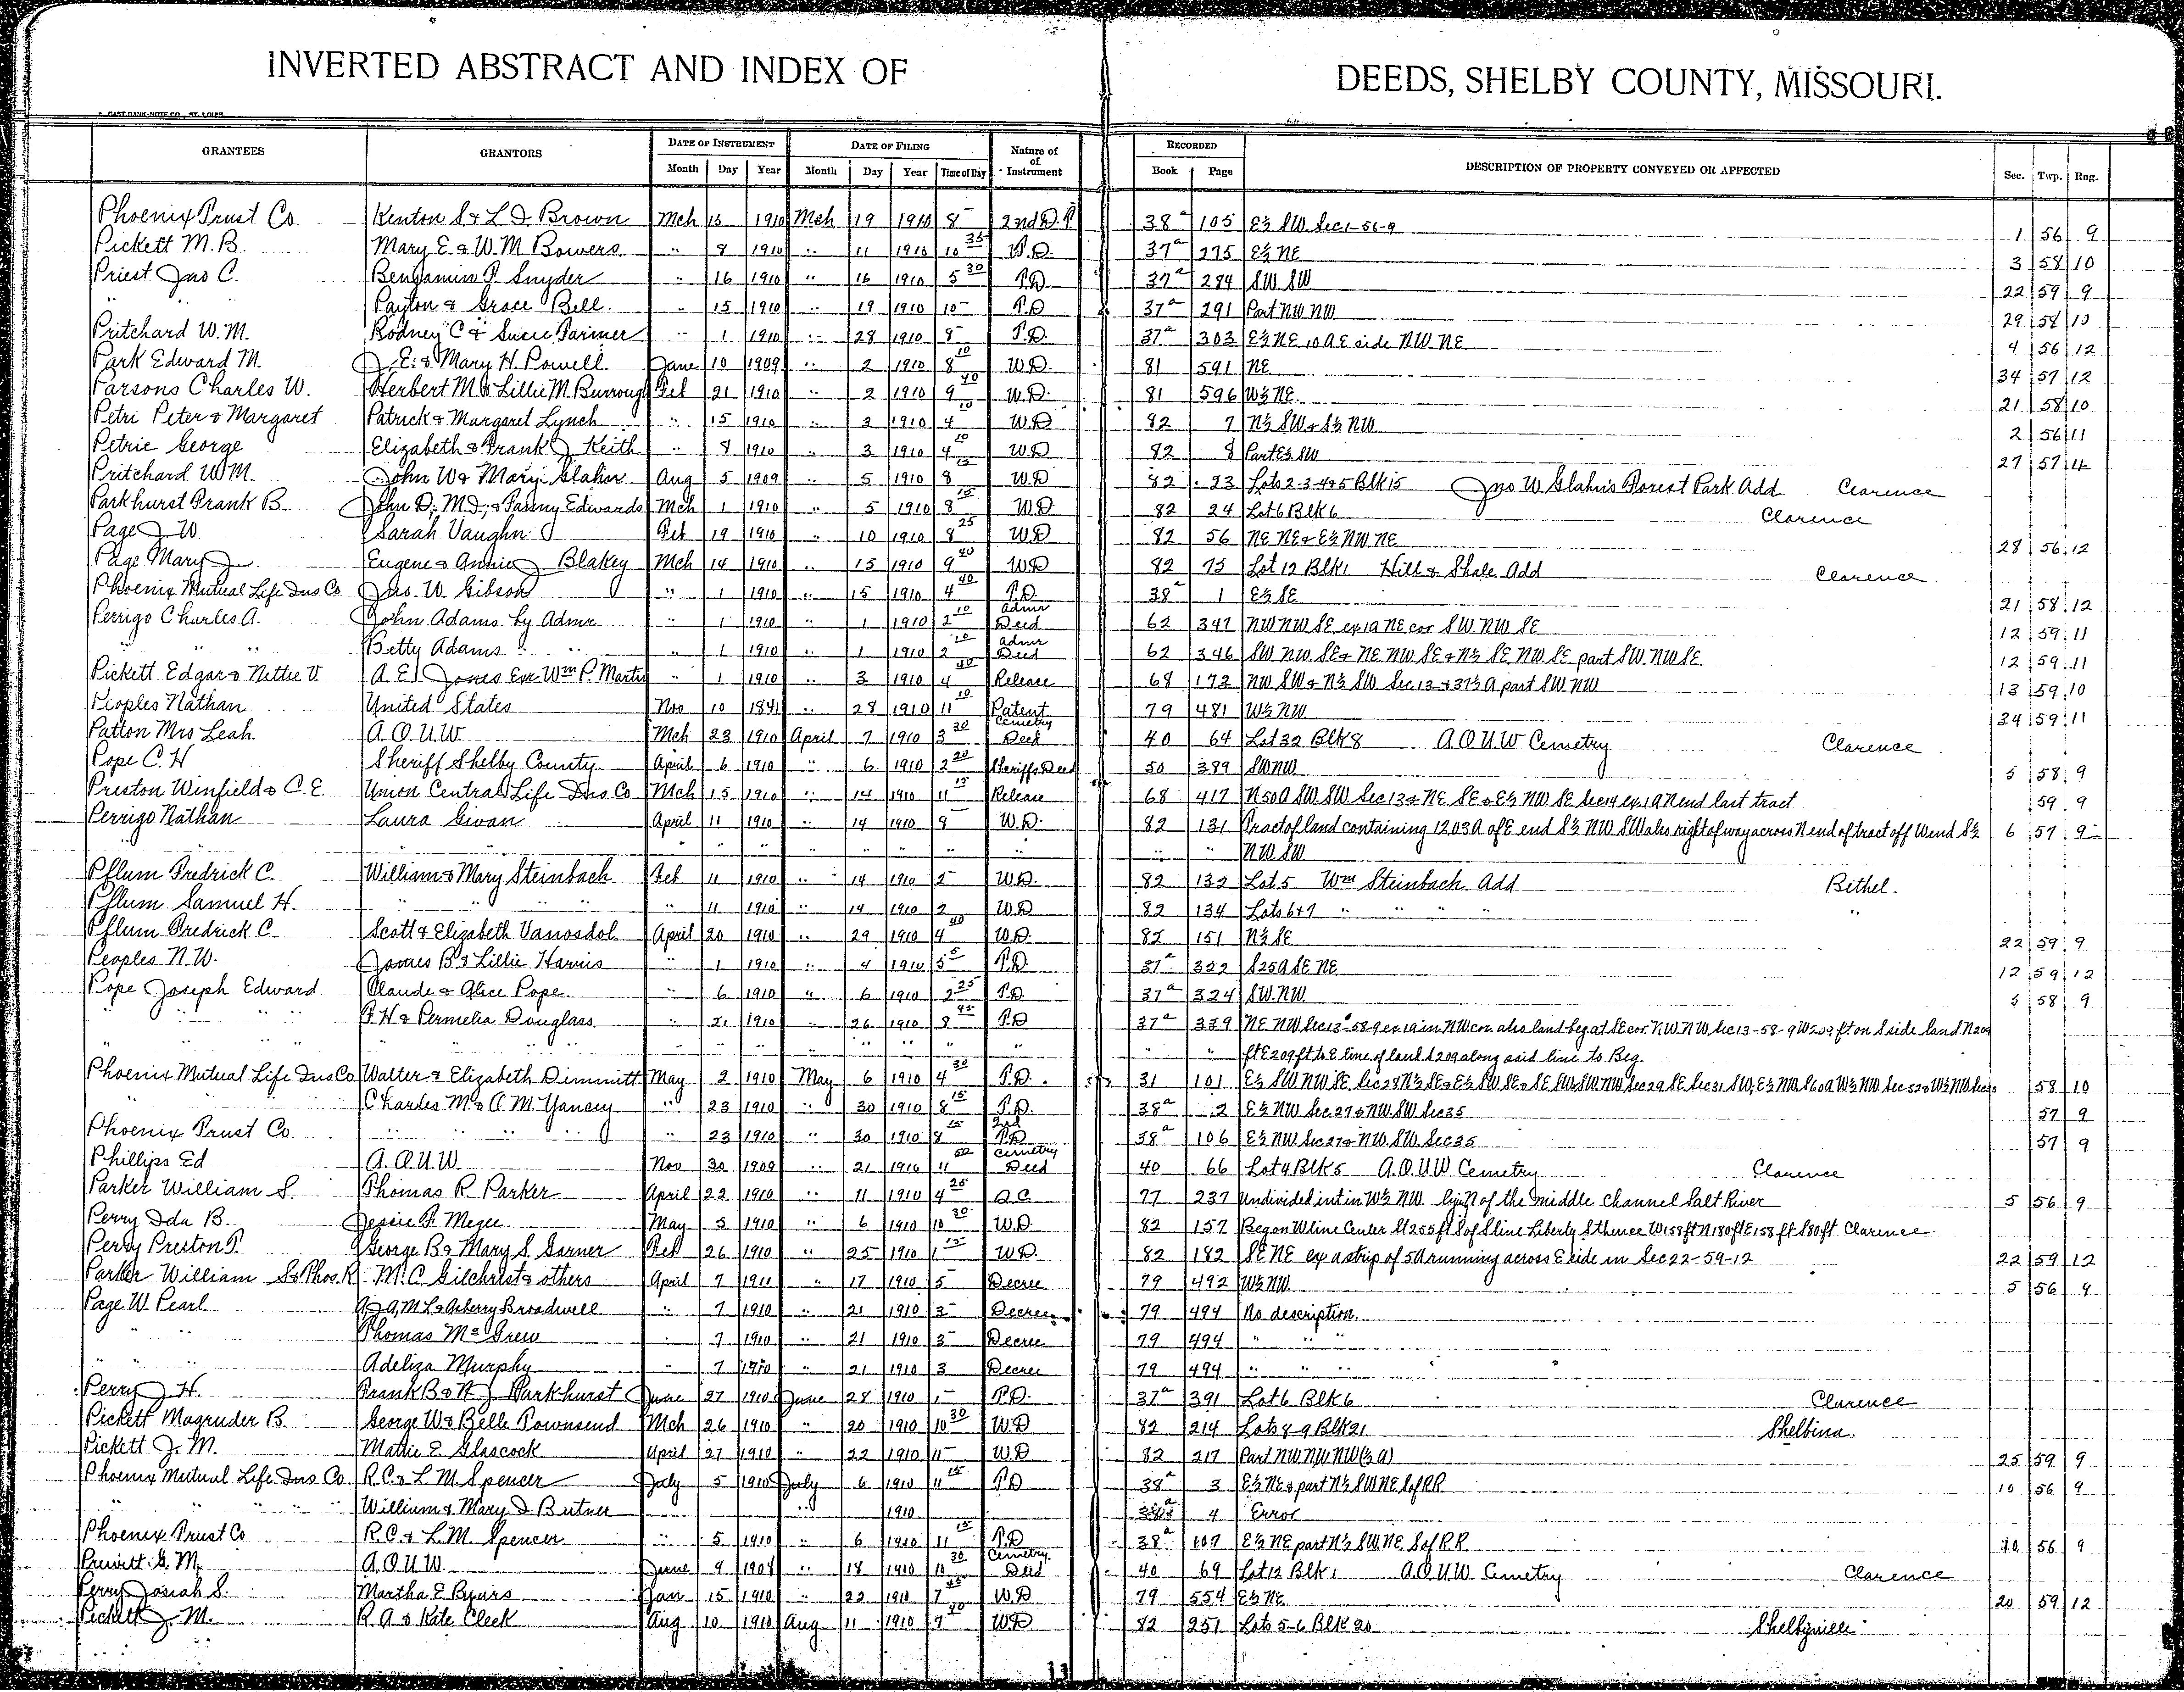 INVERTED ABSTRACT AND INDEX OF DEEDS, SHELBY COUNTY, MISSOURI.
GRANTEES GRANTORS DATE OF INSTRUMENT DATE OF FILING Nature of of Instrument RECORDED DESCRIPTION OF PROPERTY CONVEYED OR AFFECTED Sec. Twp. Rng.
Month Day Year Month Day Year Time of Day Book Page
Phoenix Trust Co. Kenton S & L I Brown Mch 15 1910 Mch 19 1910 8 2nd D.T. 38a 105 E½ SW Sec 1-56-9 1 56 9
Pickett M.B. Mary E & W M Bowers " 8 1910 " 11 1910 10 35 W.D. 37a 275 E½ NE 3 58 10
Priest Jno C. Benjamin F. Snyder " 16 1910 " 16 1910 5 30 T.D 37a 284 SW SW 22 59 9
" " Payton & Grace Bell " 15 1910 " 19 1910 10 T.D 37a 291 Part NW NW 29 58 10
Pritchard W.M. Rodney C & Susie Farmer " 1 1910 " 28 1910 8 T.D. 37a 303 E½ NE 10 A E side NW NE 4 56 12
Park Edward M. J. E. & Mary H. Powell Jane 10 1909 " 2 1910 8 10 W.D. 81 591 NE 34 57 12
Parsons Charles W. Herbert M & Lillie M Burrough Feb 21 1910 " 2 1910 9 40 W.D. 81 596 W½ NE 21 58 10
Petri Peter & Margaret Patrick & Margaret Lynch " 15 1910 " 3 1910 4 10 W.D 82 7 N½ SW & S½ NW 2 56 11
Petrie George Elizabeth & Frank J Keith " 8 1910 " 3 1910 4 20 W.D 82 8 Part E½ SW 27 57 12
Pritchard W.M. John W & Mary Glahn Aug 5 1909 " 5 1910 8 15 W.D 82 23 Lots 2-3-4 & 5 Blk 15 Jno W. Glahn's Forest Park Add Clarence
Parkhurst Frank B. John D, M J, & Fanny Edwards Mch 1 1910 " 5 1910 8 15 W.D 82 24 Lot 6 Blk 6 Clarence
Page J W. Sarah Vaughn Feb 19 1910 " 10 1910 8 25 W.D 82 56 NE NE & E½ NW NE 28 56 12
Page Mary J Eugene & Annie J Blakey Mch 14 1910 " 15 1910 9 40 W.D 82 75 Lot 12 Blk 1 Hill & Shale Add Clarence
Phoenix Mutual Life Ins Co Jas. W. Gibson " 1 1910 " 15 1910 4 40 T.D. 38a 1 E½ SE 21 58 12
Perrigo Charles A. John Adams by Admr " 1 1910 " 1 1910 2 10 Admr Deed 62 347 NW NW SE ex 1 A NE cor SW NW SE 12 59 11
" " Betty Adams " " " 1 1910 " 1 1910 2 10 Admr Deed 62 346 SW NW SE & NE NW SE & N½ SE NW SE part SW NW SE. 12 59 11
Pickett Edgar & Nettie V. A. E. Jones Exr Wm P. Martin " 1 1910 " 3 1910 4 40 Release 68 172 NW SW & N½ SW Sec 13 & 37½ A part SW NW 13 59 10
Peoples Nathan United States Nov 10 1841 " 28 1910 11 10 Patent 79 481 W½ NW 34 59 11
Patton Mrs Leah. A.O.U.W. Mch 23 1910 April 7 1910 3 30 Cemetry Deed 40 64 Lot 32 Blk 8 A.O.U.W Cemetry Clarence
Pope C.H Sheriff Shelby County April 6 1910 " 6 1910 2 20 Sheriffs Deed 50 389 SW NW 5 58 9
Preston Winfield & C.E. Union Central Life Ins Co Mch 15 1910 " 14 1910 11 15 Release 68 417 N 50 A SW SW Sec 13 & NE SE & E½ NW SE Sec 14 ex 1 A N end last tract 59 9
Perrigo Nathan Laura Givan April 11 1910 " 14 1910 9 W.D. 82 131 Tract of land containing 12.03 A of E end S½ NW SW also right of way across N end of tract off W end S½ 6 57 9
" " " " " " " " " " " " NW SW
Pflum Fredrick C. William & Mary Steinbach Feb 11 1910 " 14 1910 2 W.D. 82 132 Lot 5 Wm Steinbach Add Bethel.
Pflum Samuel H. " " " " " 11 1910 " 14 1910 2 W.D 82 134 Lots 6 & 7 " " " " "
Pflum Fredrick C. Scott & Elizabeth Vanosdol April 20 1910 " 29 1910 4 40 W.D. 82 151 N½ SE 22 59 9
Peoples N.W. James B & Lillie Harris " 1 1910 " 4 1910 5 5 T.D 37a 322 S 25 A SE NE 12 59 12
Pope Joseph Edward Claude & Alice Pope " 6 1910 " 6 1910 2 25 T.D. 37a 324 SW NW 5 58 9
" " " F. H & Permelia Douglass " 21 1910 " 26 1910 8 45 T.D 37a 339 NE NW Sec 13-58-9 ex 1 A in NW cor also land beg at SE cor NW NW Sec 13-58-9 W 209 ft on S side land N 209
" " " " " " " " " " " " ft E 209 ft to E line of land S 209 along said line to Beg.
Phoenix Mutual Life Ins Co Walter & Elizabeth Dimmitt May 2 1910 May 6 1910 4 30 T.D. 31 101 E½ SW NW SE Sec 28 N½ SE & E½ SW SE & SE SW & SW NW Sec 29 SE Sec 31 SW; E½ NW S 60 A W½ NW Sec 32 & W½ NW 58 10
" Charles M & O M Yancey " 23 1910 " 30 1910 8 15 T.D. 38a 2 E½ NW Sec 27 & NW SW Sec 35 57 9
Phoenix Trust Co. " " " " " 23 1910 " 30 1910 8 15 2nd T.D 38a 106 E½ NW Sec 27 & NW SW Sec 35 57 9
Phillips Ed A.O.U.W. Nov 30 1909 " 21 1910 11 50 Cemetry Deed 40 66 Lot 4 Blk 5 A.O.U.W Cemetry Clarence
Parker William S. Thomas R. Parker April 22 1910 " 11 1910 4 25 Q.C. 77 237 Undivided int in W½ NW lying N of the middle channel Salt River 5 56 9
Perry Ida B. Jessie F. Megee May 5 1910 " 6 1910 10 30 W.D. 82 157 Beg on W line Center St 255 ft S of S line Liberty S thence W 158 ft N 180 ft E 158 ft S 80 ft Clarence
Perry Preston T. George B & Mary S. Garner Feb 26 1910 " 25 1910 1 15 W.D. 82 182 SE NE ex a strip of 5 A running across E side in Sec 22-59-12 22 59 12
Parker William S & Thos R. M.C. Gilchrist & others April 7 1910 " 17 1910 5 Decree 79 492 W½ NW. 5 56 9
Page W. Pearl A J A, M L & Asberry Broadwell " 7 1910 " 21 1910 3 Decree 79 494 No description.
" " Thomas McGrew " 7 1910 " 21 1910 3 Decree 79 494 " "
" " Adeliza Murphy " 7 1910 " 21 1910 3 Decree 79 494 " " "
Perry J H. Frank B & H J Parkhurst June 27 1910 June 28 1910 1 T.D. 37a 391 Lot 6 Blk 6 Clarence
Pickett Magruder B. George W & Belle Townsend Mch 26 1910 " 20 1910 10 30 W.D 82 214 Lots 8-9 Blk 21 Shelbina.
Pickett J. M. Mattie E Glascock April 27 1910 " 22 1910 11 W.D 82 217 Part NW NW NW (½ A) 25 59 9
Phoenix Mutual Life Ins Co R.C. & L M Spencer July 5 1910 July 6 1910 11 15 T.D 38a 3 E½ NE & part N½ SW NE S of RR 10 56 9
" " " " William & Mary I Butner " 1910 4 Error
Phoenix Trust Co R.C. & L.M. Spencer " 5 1910 " 6 1910 11 15 T.D 38a 107 E½ NE part N½ SW NE S of R.R. 10 56 9
Pruvitt G. M. A.O.U.W. June 9 1908 " 18 1910 10 30 Cemetry Deed 40 69 Lot 12 Blk 1 A.O.U.W Cemetry Clarence
Perry Josiah S. Martha E Byars Jan 15 1910 " 22 1910 7 45 W.D 79 554 E½ NE 20 59 12
Pickett J. M. R. A & Kate Cleek Aug 10 1910 Aug 11 1910 9 40 W.D 82 251 Lots 5-6 Blk 20 Shelbyville